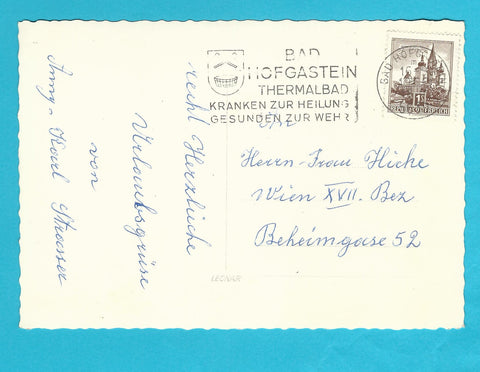 BAD
HOFGASTEIN
THERMALBAD
KRANKEN ZUR HEILUNG
GESUNDEN ZUR WEHR
BAD HOFG
REPUBLIK ÖSTERREICH
recht Herzliche
Urlaubsgrüse
von
Anny - Karl Strasser
An
Herrn-Frau Hiche
Wien XVII. Bez
Beheimgase 52
LEONAR